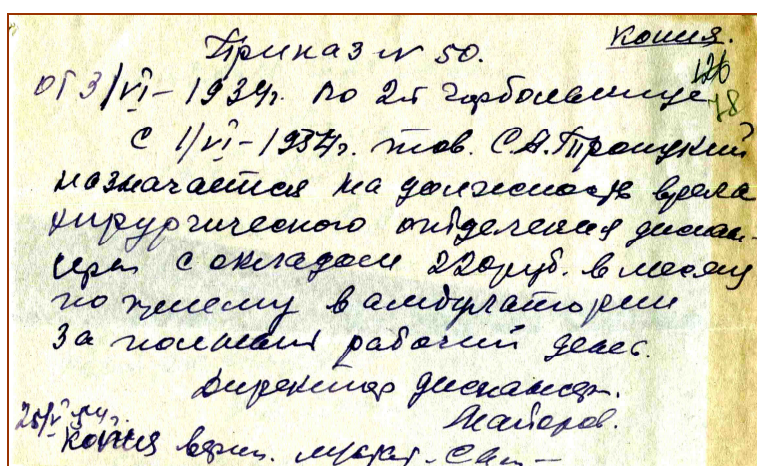 Копия.
Приказ N 50.
126
78
от 3/VI – 1934г. по 2й горбольнице
с 1/VI – 1934г. тов. С.А. Троицкий
назначается на должность врача
хирургического отделения диспан-
сера с окладом 220 руб. в месяц
по приему в амбулатории
за полный рабочий день.
Директор диспансер.
Майоров.
Копия верн.